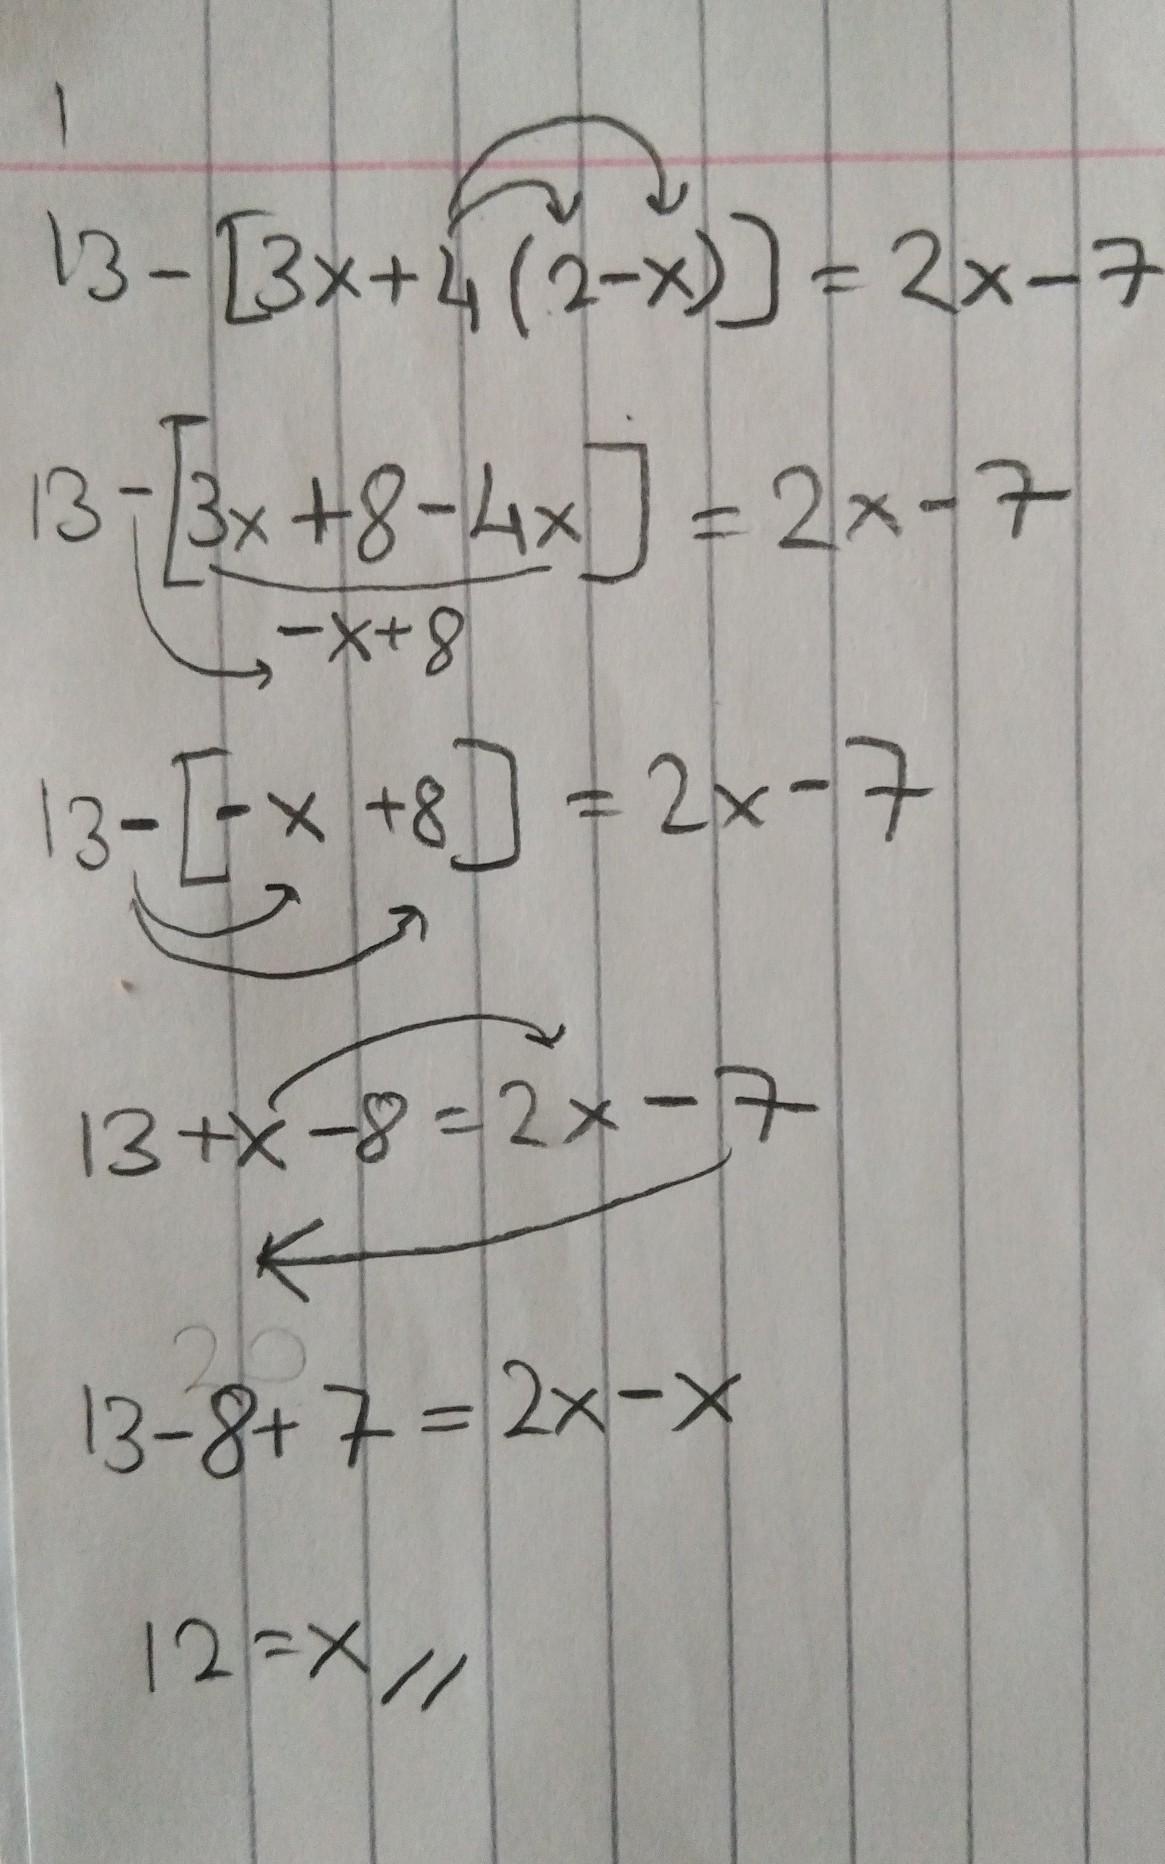 1
13-[3x+4(2-x)]=2x-7
13-[3x+8-4x]=2x-7
-x+8
13-[-x+8]=2x-7
13+x-8=2x-7
20
13-8+7=2x-x
12=x//